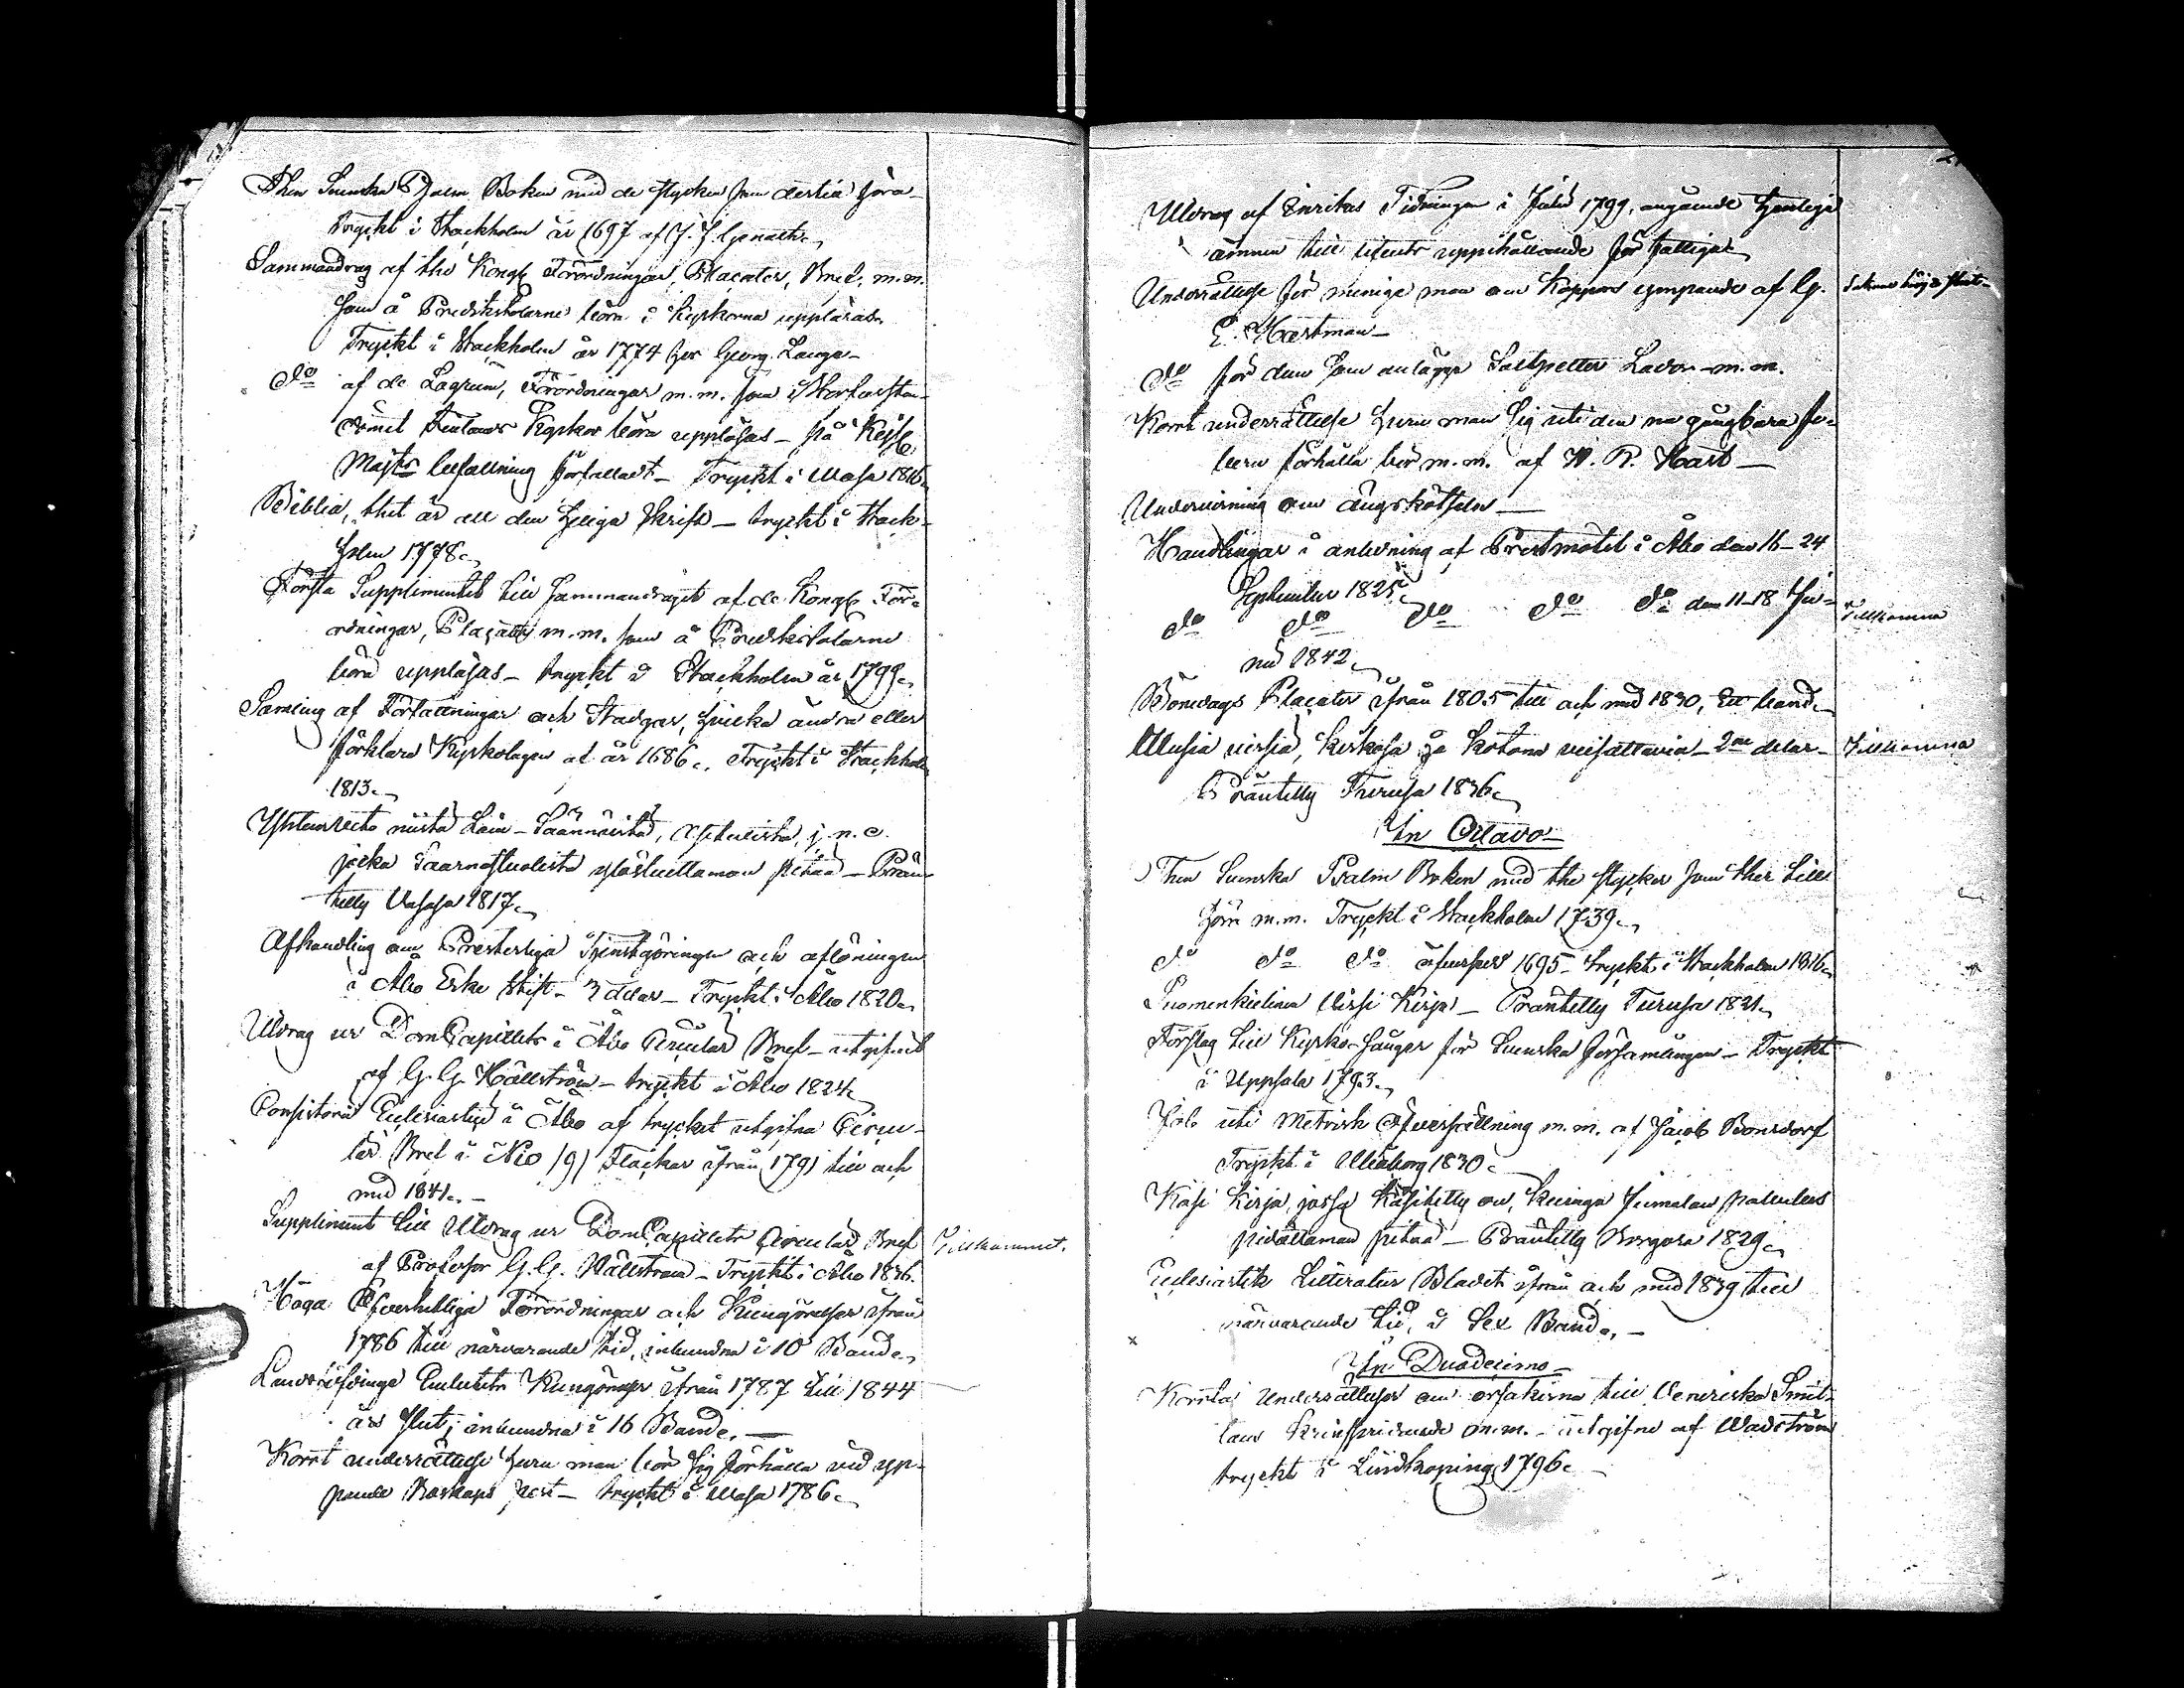 Then Svenska Psalm Boken med de stycken som dertil höra
Tryckt i Stockholm år 1697 af J. J. Genath.
Sammandrag af the Kongl Förordningar, Placater, Bref, m.m.
som å Predikstolarne böra i kyrkorna uppläsas.
Tryckt i Stockholm år 1774 hos Georg Lange
do af de Lagrum, Förordningar m.m. som i Storfursten-
dömet Finlands Kyrkor böra uppläsas – på Kejserl.
Majts befallning författadt – Tryckt i Wasa 1816.
Biblia, thet är all den Heliga Skrift – tryckt i Stock-
holm 1778.
Första Supplimentet till Sammandraget af de Kongl För-
ordningar, Placater m.m. som å Predikstolarne
böra uppläsas – tryckt i Stockholm år 1799.
Samling af Författningar och Stadgar, hvilka ändra eller
förklara Kyrkolagen af år 1686. Tryckt i Stockholm
1813.
Yhteenveto niistä Lain-Säännöistä, Asetuxista, j.n.e.
jotka Saarnastuolista ylösluettaman pitää – Prän-
tätty Vasasa 1817.
Afhandling om Presterliga Tjenstgöringen och aflöningen
i Åbo Erke Stift – 3 delar – Tryckt i Åbo 1820.
Utdrag ur DomCapitlets i Åbo Circulär Bref – utgifvit
af G. G. Hällström – tryckt i Åbo 1824.
Consistorii Ecclesiastici i Åbo af trycket utgifna Circu-
lär Bref i Nio /9/ Flockar ifrån 1791 till och
med 1841. –
Suppliment till Utdrag ur DomCapitlets Circulär Bref
af Professor G. G. Hällström – Tryckt i Åbo 1836.
Tillkommit.
Höga Öfverhetliga Förordningar och Kungörelser ifrån
1786 till närvarande tid, inbundna i 10 Band.
Landshöfdinge Embetets Kungörelser ifrån 1787 till 1844
års slut, inbundna i 16 Band. –
Kort underrättelse huru man bör sig förhålla vid yp-
pande Boskaps pest – tryckt i Wasa 1786.
Utdrag af Inrikes Tidningar i Julii 1799, angående tjenliga
ämnen till lifvets uppehållande för fattiga
Underrättelse för menige man om Koppors ympande af G.
E. Haartman –
do för dem som anlägga Saltpetter Lador – m.m.
Kort underrättelse huru man sig uti den nu gångbara fe-
bern förhålla bör m.m. af H. R. Hast –
Undervisning om ängskötseln –
Handlingar i anledning af Prestmötet i Åbo den 16–24
September 1825.
do do do do do den 11–18 Ju-
nii 1842.
Tillkomna
Böndags Placater ifrån 1805 till och med 1830, Ett band.
Uusia virsiä, kirkosa ja kotona veisattavia – 2ne delar –
Tillkomna
Präntätty Turusa 1836.
In Octavo –
Then Svenska Psalm Boken med the stycker som ther till
höra m.m. Tryckt i Stockholm 1739.
do do do öfversedd 1695 – tryckt i Stockholm 1816.
Suomenkielinen Virsi Kirja – Präntätty Turusa 1821.
Förslag till Kyrko-Sånger för Svenska församlingen – Tryckt
i Uppsala 1793.
Job uti Metrisk öfversättning m.m. af Jacob Bonsdorf
Tryckt i Uleåborg 1830.
Käsi Kirja, jossa Käsitetty on, kuinga Jumalan palvelus
pidettämän pitää – Präntätty Borgosa 1829.
Ecclesiastik Litteratur Bladet ifrån och med 1839 till
närvarande tid, i Sex Band. –
In Duodecimo –
Korrta Underrättelser om orsakerna till Veneriska Smit-
tans kringspridande m.m. – utgifne af Wadström
tryckt i Lindköping 1796.